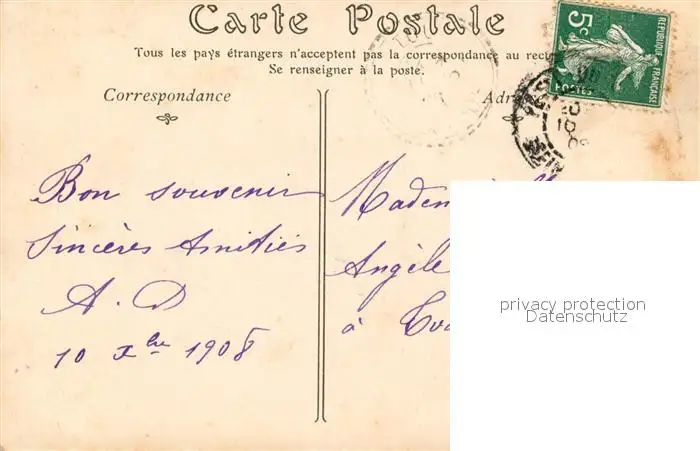 Carte Postale
Tous les pays étrangers n'acceptent pas la correspondance au rec
Se renseigner à la poste.
Correspondance
Adr
5c
REPUBLIQUE FRANÇAISE
POSTES
10
Bon souvenir
Sincères Amitiés
A. D
10 Xbre 1908
Madem
Angèle
à
privacy protection
Datenschutz